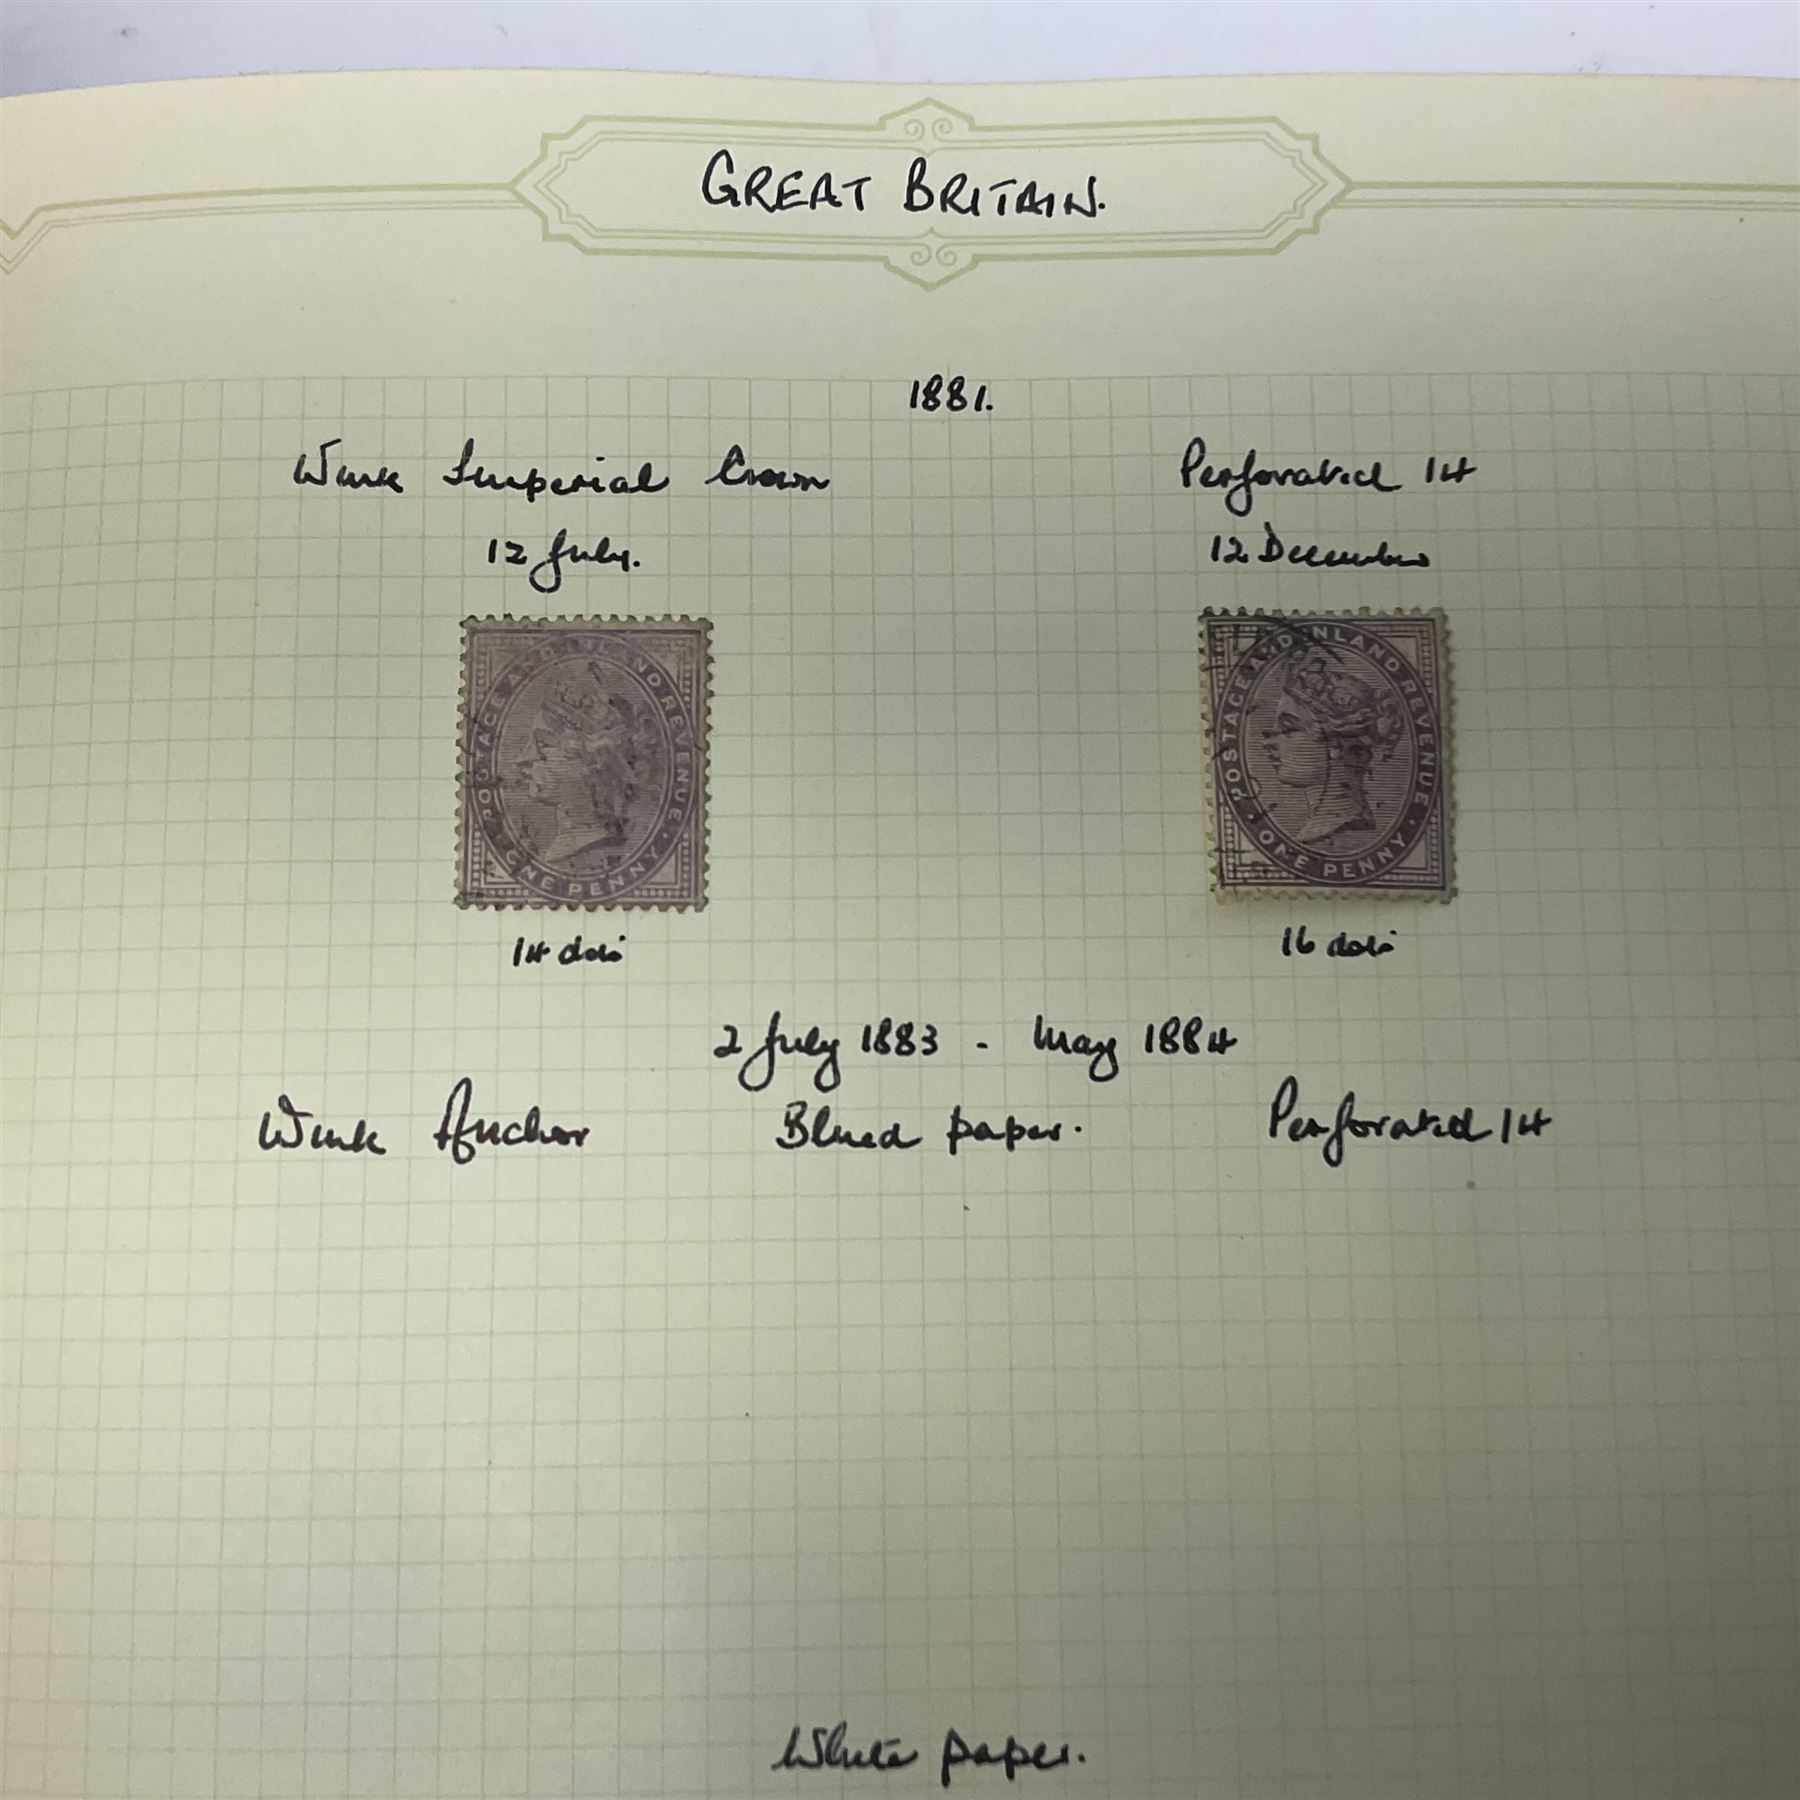 GREAT BRITAIN.
1881.
Wmk Imperial Crown Perforated 14
12 July. 12 December
POSTAGE AND INLAND REVENUE
ONE PENNY
POSTAGE AND INLAND REVENUE
ONE PENNY
14 dots 16 dots
2 July 1883 - May 1884
Wmk Anchor Blued paper. Perforated 14
White paper.